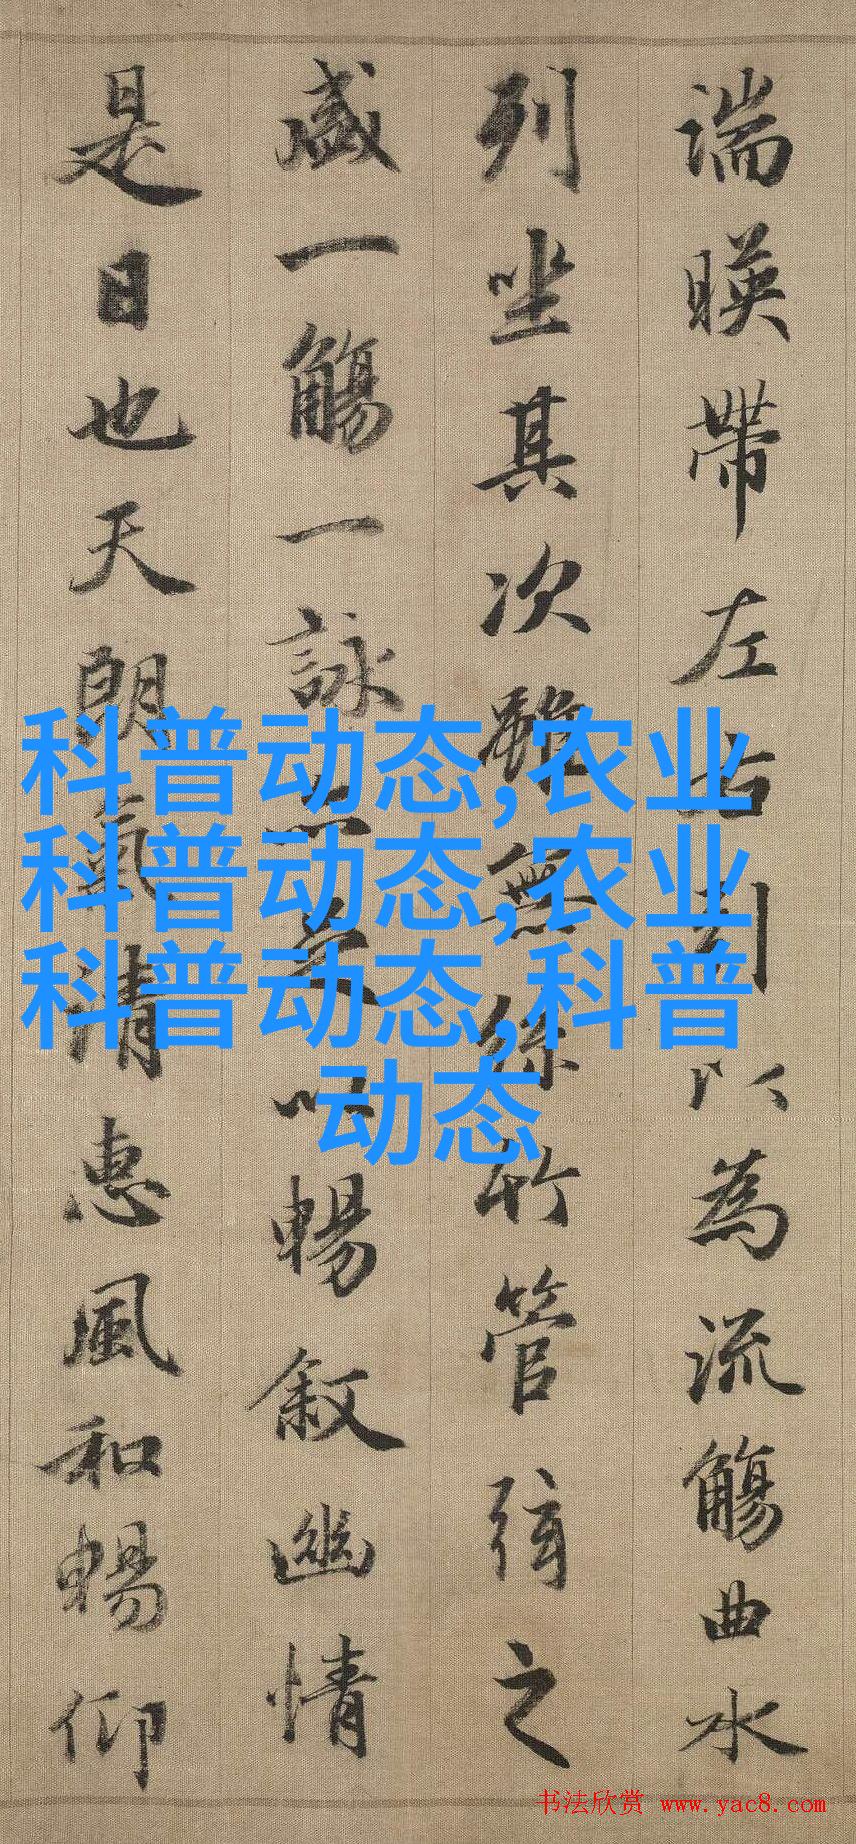 湍暎帶左右引以為流觴曲水
列坐其次雖無絲竹管弦之
盛一觴一詠亦足以暢叙幽情
是日也天朗氣清惠風和暢仰
科普动态,农业
科普动态,农业
科普动态,科普
动态
书法欣赏 www.yac8.com